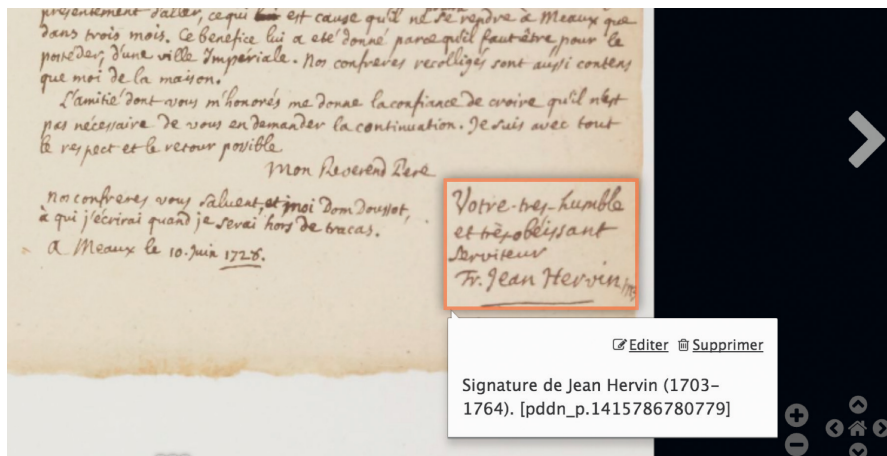 présentement d'aller, ce qui est cause qu'il ne se rendre à Meaux que
dans trois mois. Ce benefice lui a eté donné parce qu'il faut être pour le
posseder, d'une ville Impériale. Nos confreres recolligés sont aussi contens
que moi de la maison.
L'amitié dont vous m'honorés me donne la confiance de croire qu'il n'est
pas nécessaire de vous en demander la continuation. Je suis avec tout
le respect et le retour possible
Mon Reverend Pere
Nos confreres vous saluent, et moi Dom Doussot,
à qui j'écrirai quand je serai hors de tracas.
A Meaux le 10. Juin 1728.
Votre-tres-humble
et très obéissant
serviteur
Fr. Jean Hervin
Editer Supprimer
Signature de Jean Hervin (1703-
1764). [pddn_p.1415786780779]